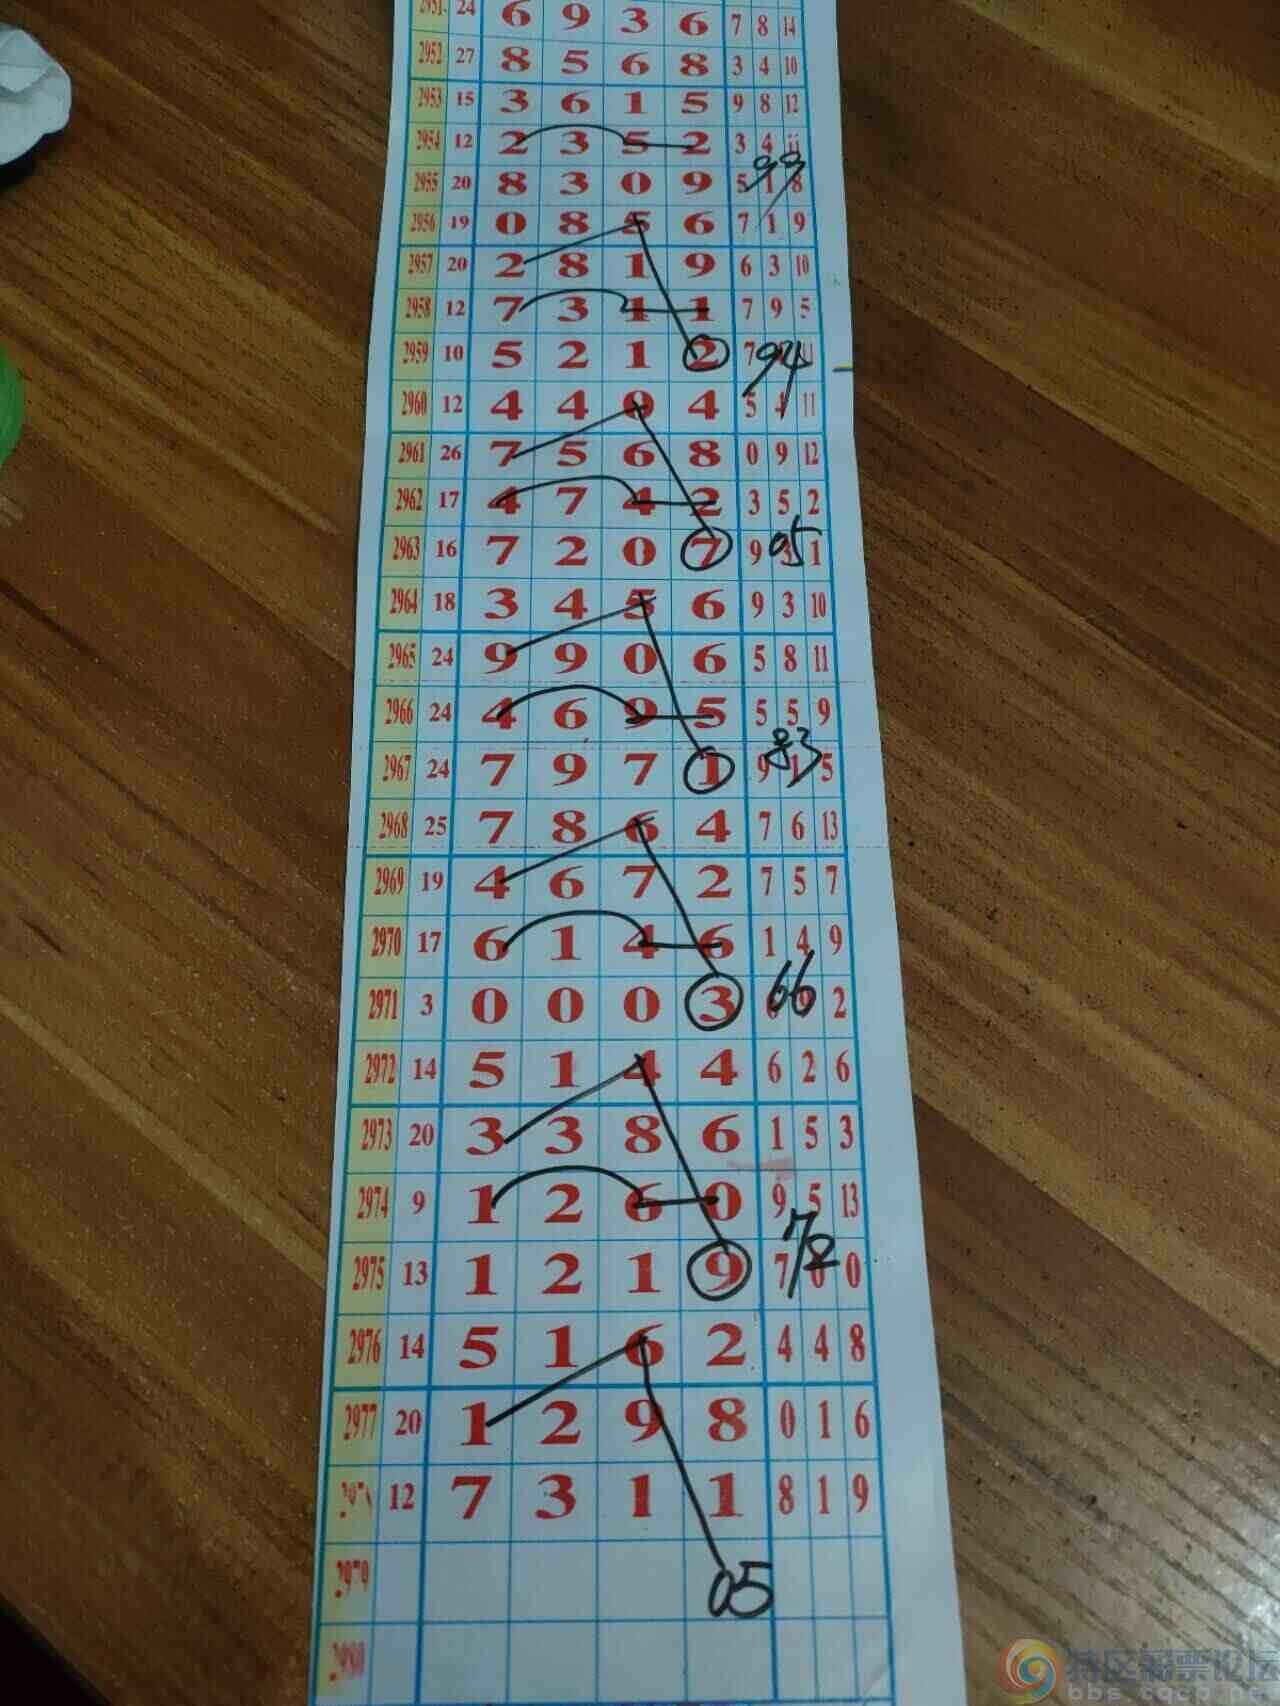 2951 24 6 9 3 6 7 8 14
2952 27 8 5 6 8 3 4 10
2953 15 3 6 1 5 9 8 12
2954 12 2 3 5 2 3 4 11
99
2955 20 8 3 0 9 5 1 8
2956 19 0 8 5 6 7 1 9
2957 20 2 8 1 9 6 3 10
2958 12 7 3 1 1 7 9 5
2959 10 5 2 1 2 7 94
2960 12 4 4 0 4 5 4 11
2961 26 7 5 6 8 0 9 12
2962 17 4 7 4 2 3 5 2
2963 16 7 2 0 7 9 3 1 05
2964 18 3 4 5 6 9 3 10
2965 24 9 9 0 6 5 8 11
2966 24 4 6 9 5 5 5 9
2967 24 7 9 7 1 9 1 5 83
2968 25 7 8 6 4 7 6 13
2969 19 4 6 7 2 7 5 7
2970 17 6 1 4 6 1 4 9
2971 3 0 0 0 3 9 2 66
2972 14 5 1 4 4 6 2 6
2973 20 3 3 8 6 1 5 3
2974 9 1 2 6 0 9 5 13
2975 13 1 2 1 9 7 0 0 72
2976 14 5 1 6 2 4 4 8
2977 20 1 2 9 8 0 1 6
2978 12 7 3 1 1 8 1 9
2979 05
2980
特区彩票论坛
bbs.tqcp.net